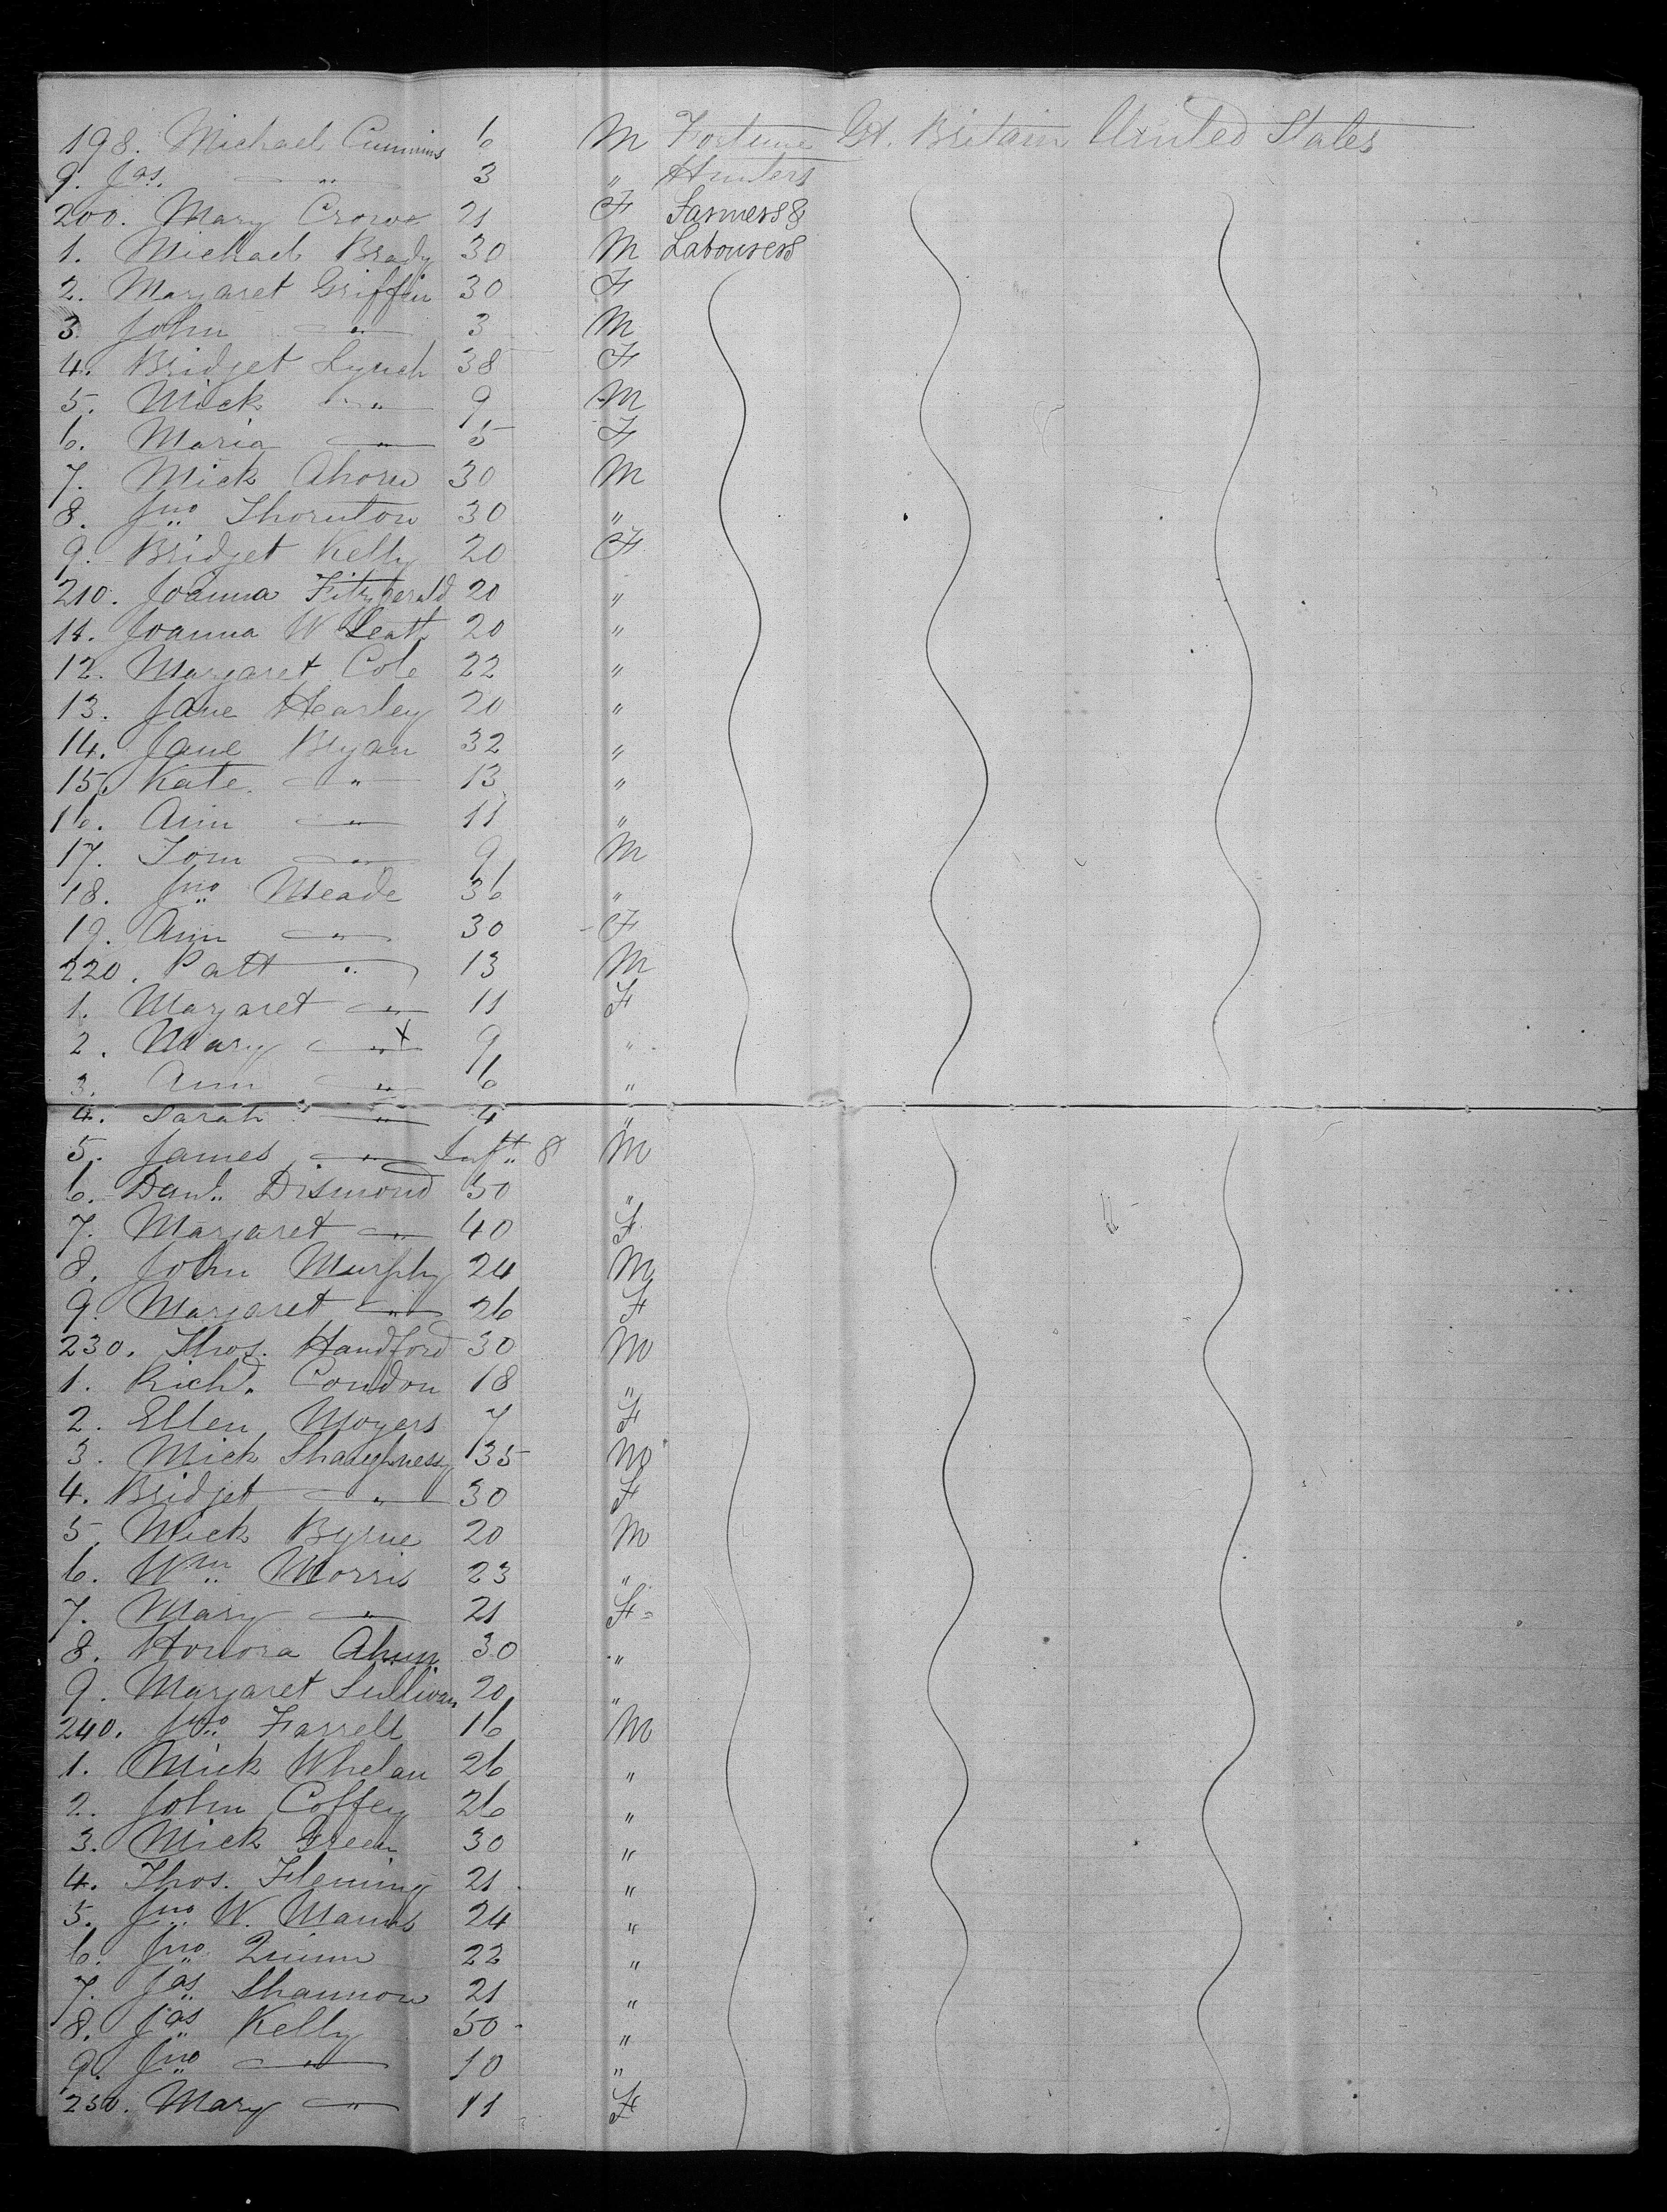 198. Michael Cummins 6 M Fortune Gt. Britain United States
9. Jas. " 3 " Hunters
200. Mary Crowe 21 F Farmers &
1. Michael Brady 30 M Labourers
2. Margaret Griffin 30 F
3. John " 3 M
4. Bridget Lynch 38 F
5. Mick " 9 M
6. Maria " 5 F
7. Mick Ahorn 30 M
8. Jno Thornton 30 "
9. Bridget Kelly 20 F
210. Joanna Fitzgerald 20 "
11. Joanna 20 "
12. Margaret Cole 22 "
13. Jane Hearley 20 "
14. Jane Bryan 32 "
15. Kate " 13 "
16. Ann " 11 "
17. Tom " 9 M
18. Jno Meade 36 "
19. Ann " 30 F
220. Patt " 13 M
1. Margaret " 11 F
2. Mary " x 9 "
3. Ann " 6 "
4. Sarah " 4 "
5. James " Inft. 8 M
6. Danl. Dismond 50 "
7. Margaret " 40 F
8. John Murphy 24 M
9. Margaret " 26 F
230. Thos. Handford 30 M
1. Richd. Condon 18 "
2. Ellen Moyers 7 F
3. Mick Shaughnessy 35 M
4. Bridget " 30 F
5. Mick Byrne 20 M
6. Wm. Morris 23 "
7. Mary " 21 F
8. Honora Ahern 30 "
9. Margaret Sullivan 20 "
240. Jno Farrell 16 M
1. Mick Whelan 26 "
2. John Coffey 26 "
3. Mick Green 30 "
4. Thos. Fleming 21 "
5. Jno W. Manus 24 "
6. Jno Quinn 22 "
7. Jas Shannon 21 "
8. Jas Kelly 50 "
9. Jno " 10 "
250. Mary " 11 F